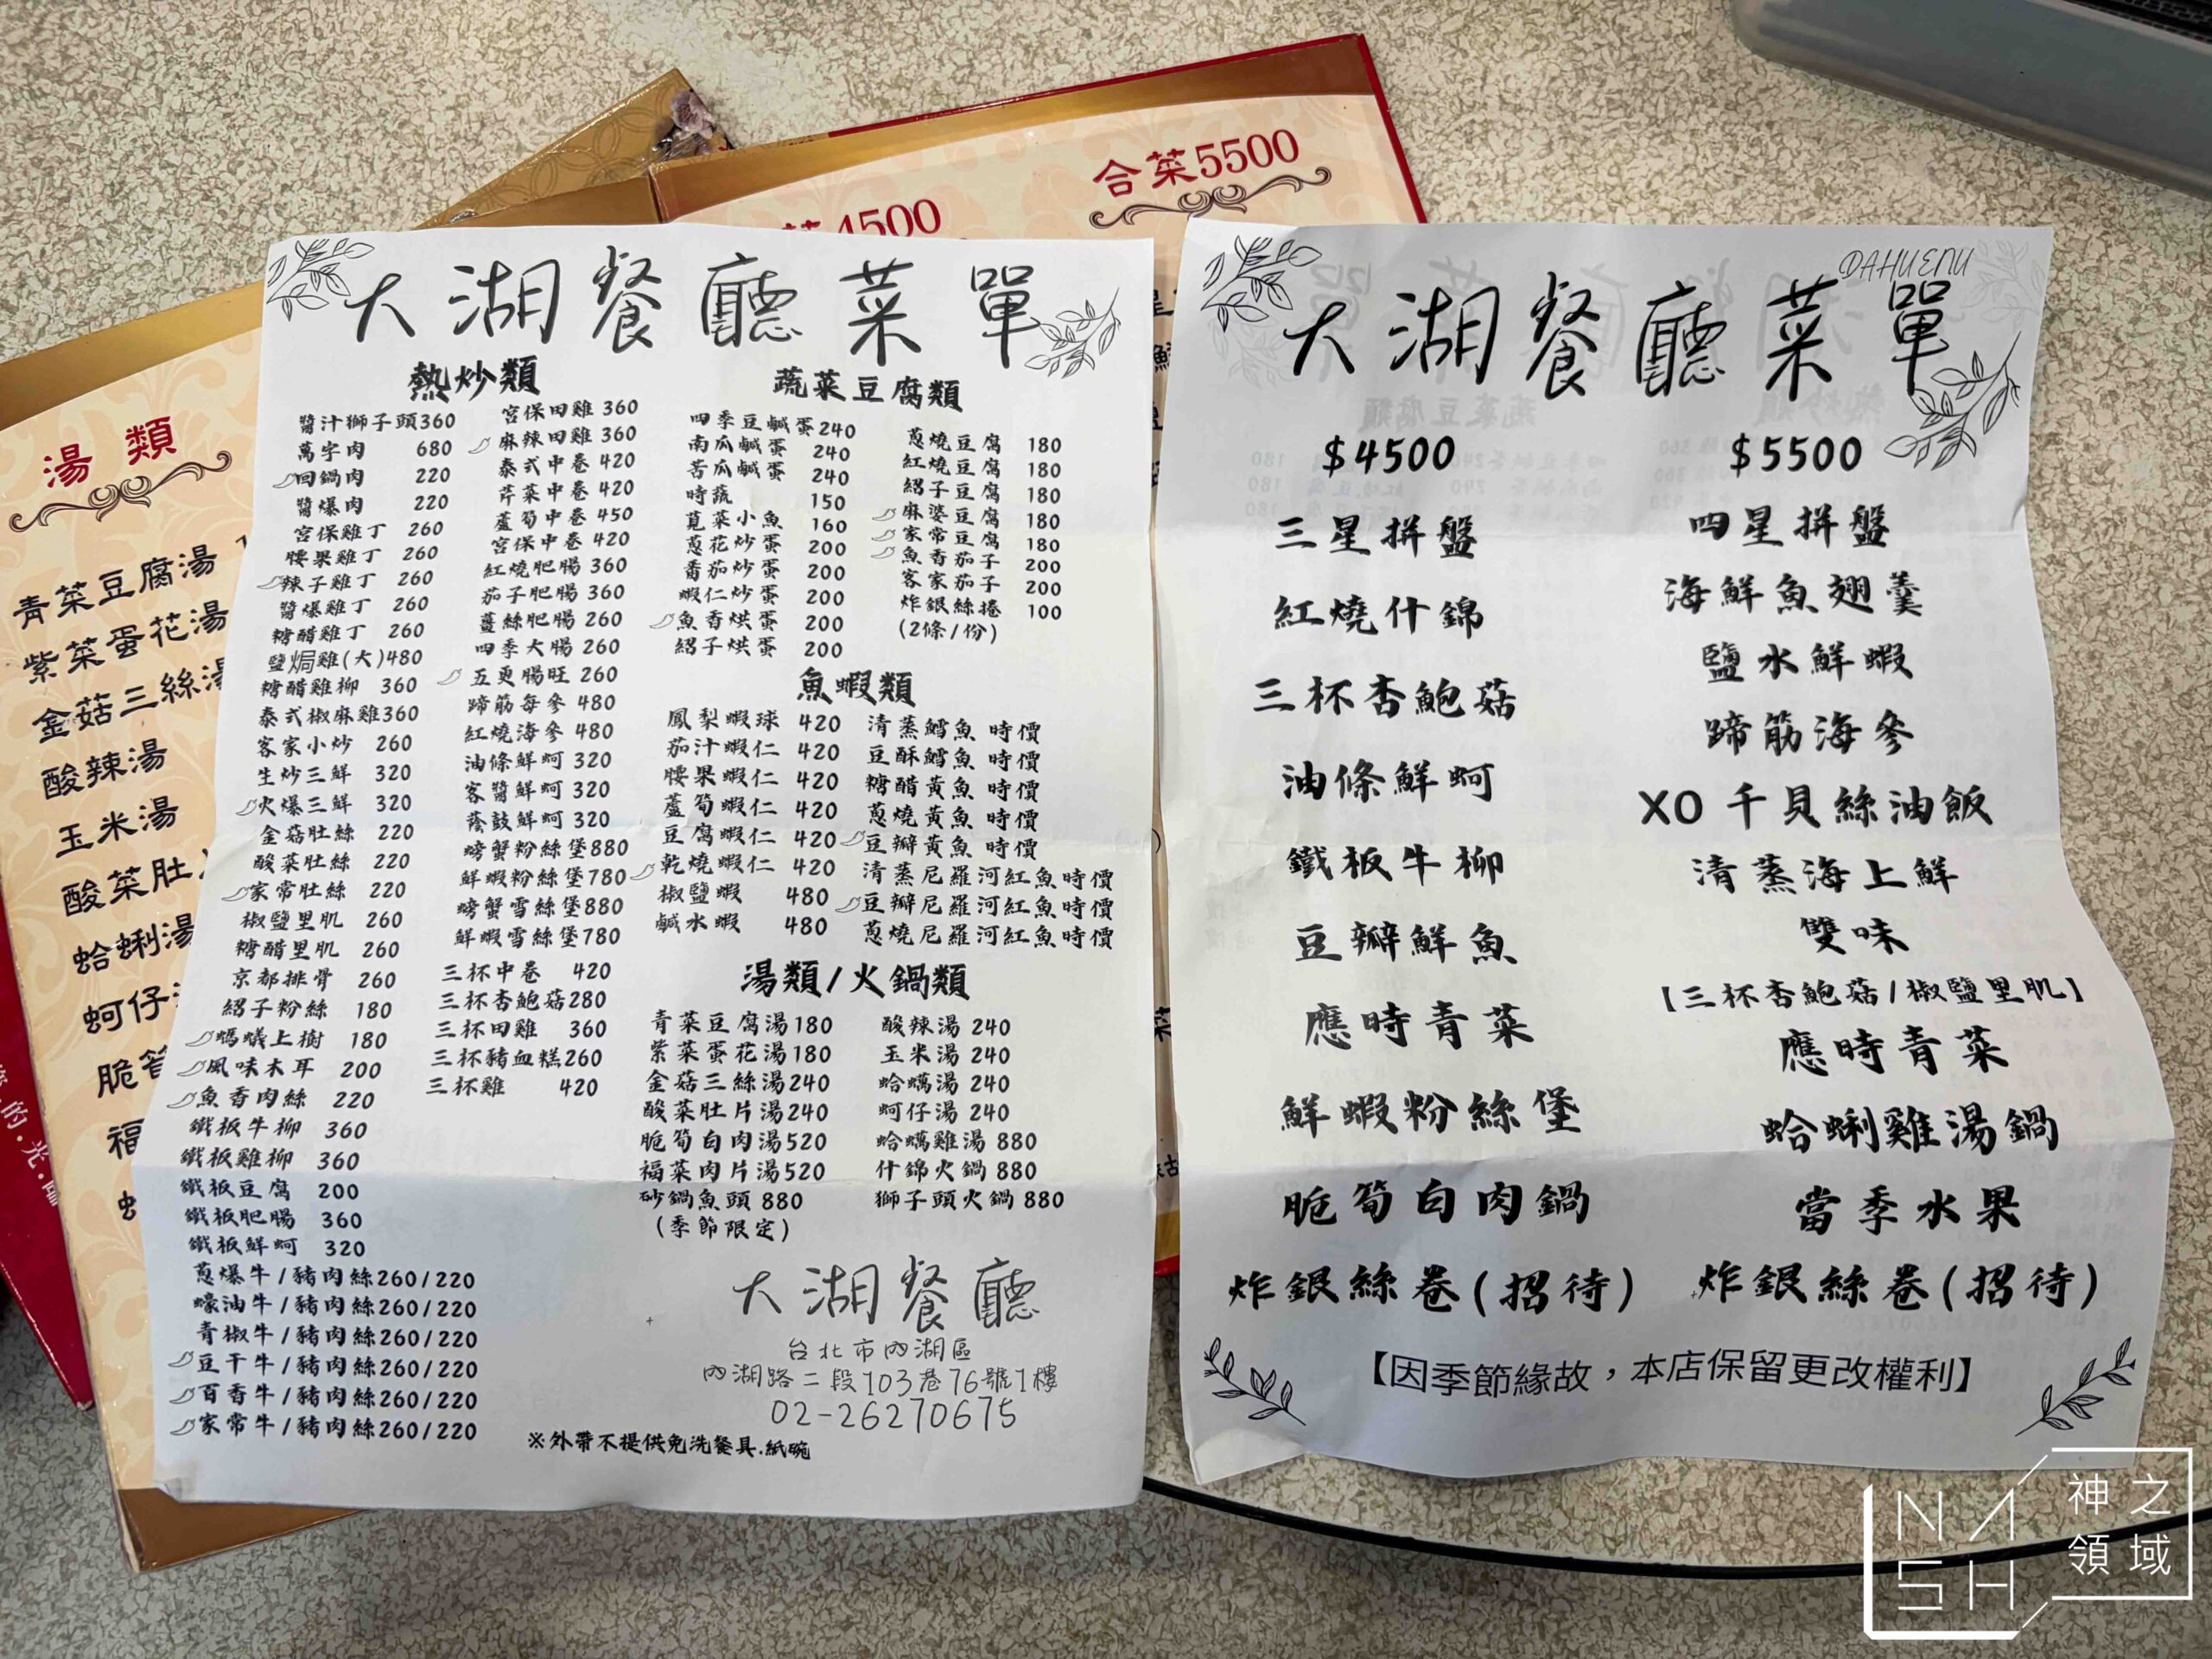 合菜5500
菜4500
湯類
青菜豆腐湯
紫菜蛋花湯
金菇三絲湯
酸辣湯
玉米湯
酸菜肚
蛤蜊湯
蚵仔
脆筍
福
大湖餐廳菜單
熱炒類
醬汁獅子頭360
萬字肉 680
回鍋肉 220
醬爆肉 220
宮保雞丁 260
腰果雞丁 260
辣子雞丁 260
醬爆雞丁 260
糖醋雞丁 260
鹽焗雞(大)480
糖醋雞柳 360
泰式椒麻雞360
客家小炒 260
生炒三鮮 320
火爆三鮮 320
金菇肚絲 220
酸菜肚絲 220
家常肚絲 220
椒鹽里肌 260
糖醋里肌 260
京都排骨 260
紹子粉絲 180
螞蟻上樹 180
風味木耳 200
魚香肉絲 220
鐵板牛柳 360
鐵板雞柳 360
鐵板豆腐 200
鐵板肥腸 360
鐵板鮮蚵 320
蔥爆牛/豬肉絲260/220
蠔油牛/豬肉絲260/220
青椒牛/豬肉絲260/220
豆干牛/豬肉絲260/220
百香牛/豬肉絲260/220
家常牛/豬肉絲260/220
宮保田雞 360
麻辣田雞 360
泰式中卷 420
芹菜中卷 420
蘆筍中卷 450
宮保中卷 420
紅燒肥腸 360
茄子肥腸 360
薑絲肥腸 260
四季大腸 260
五更腸旺 260
蹄筋每參 480
紅燒海參 480
油條鮮蚵 320
客醬鮮蚵 320
蔭鼓鮮蚵 320
螃蟹粉絲堡880
鮮蝦粉絲堡780
螃蟹雪絲堡880
鮮蝦雪絲堡780
三杯中卷 420
三杯杏鮑菇280
三杯田雞 360
三杯豬血糕260
三杯雞 420
蔬菜豆腐類
四季豆鹹蛋240
南瓜鹹蛋 240
苦瓜鹹蛋 240
時蔬 150
莧菜小魚 160
蔥花炒蛋 200
番茄炒蛋 200
蝦仁炒蛋 200
魚香烘蛋 200
紹子烘蛋 200
蔥燒豆腐 180
紅燒豆腐 180
紹子豆腐 180
麻婆豆腐 180
家常豆腐 180
魚香茄子 200
客家茄子 200
炸銀絲捲 100
(2條/份)
魚蝦類
鳳梨蝦球 420
茄汁蝦仁 420
腰果蝦仁 420
蘆筍蝦仁 420
豆腐蝦仁 420
乾燒蝦仁 420
椒鹽蝦 480
鹹水蝦 480
清蒸鱈魚 時價
豆酥鱈魚 時價
糖醋黃魚 時價
蔥燒黃魚 時價
豆瓣黃魚 時價
清蒸尼羅河紅魚時價
豆瓣尼羅河紅魚時價
蔥燒尼羅河紅魚時價
湯類/火鍋類
青菜豆腐湯180
紫菜蛋花湯180
金菇三絲湯240
酸菜肚片湯240
脆筍白肉湯520
福菜肉片湯520
砂鍋魚頭 880
(季節限定)
酸辣湯 240
玉米湯 240
蛤蠣湯 240
蚵仔湯 240
蛤蠣雞湯 880
什錦火鍋 880
獅子頭火鍋 880
大湖餐廳
台北市內湖區
內湖路二段103巷76號1樓
02-26270675
※外帶不提供免洗餐具.紙碗
DAHU MENU
大湖餐廳菜單
$4500
三星拼盤
紅燒什錦
三杯杏鮑菇
油條鮮蚵
鐵板牛柳
豆瓣鮮魚
應時青菜
鮮蝦粉絲堡
脆筍白肉鍋
炸銀絲卷(招待)
$5500
四星拼盤
海鮮魚翅羹
鹽水鮮蝦
蹄筋海參
XO干貝絲油飯
清蒸海上鮮
雙味
【三杯杏鮑菇/椒鹽里肌】
應時青菜
蛤蜊雞湯鍋
當季水果
炸銀絲卷(招待)
【因季節緣故，本店保留更改權利】
NASH
神之領域